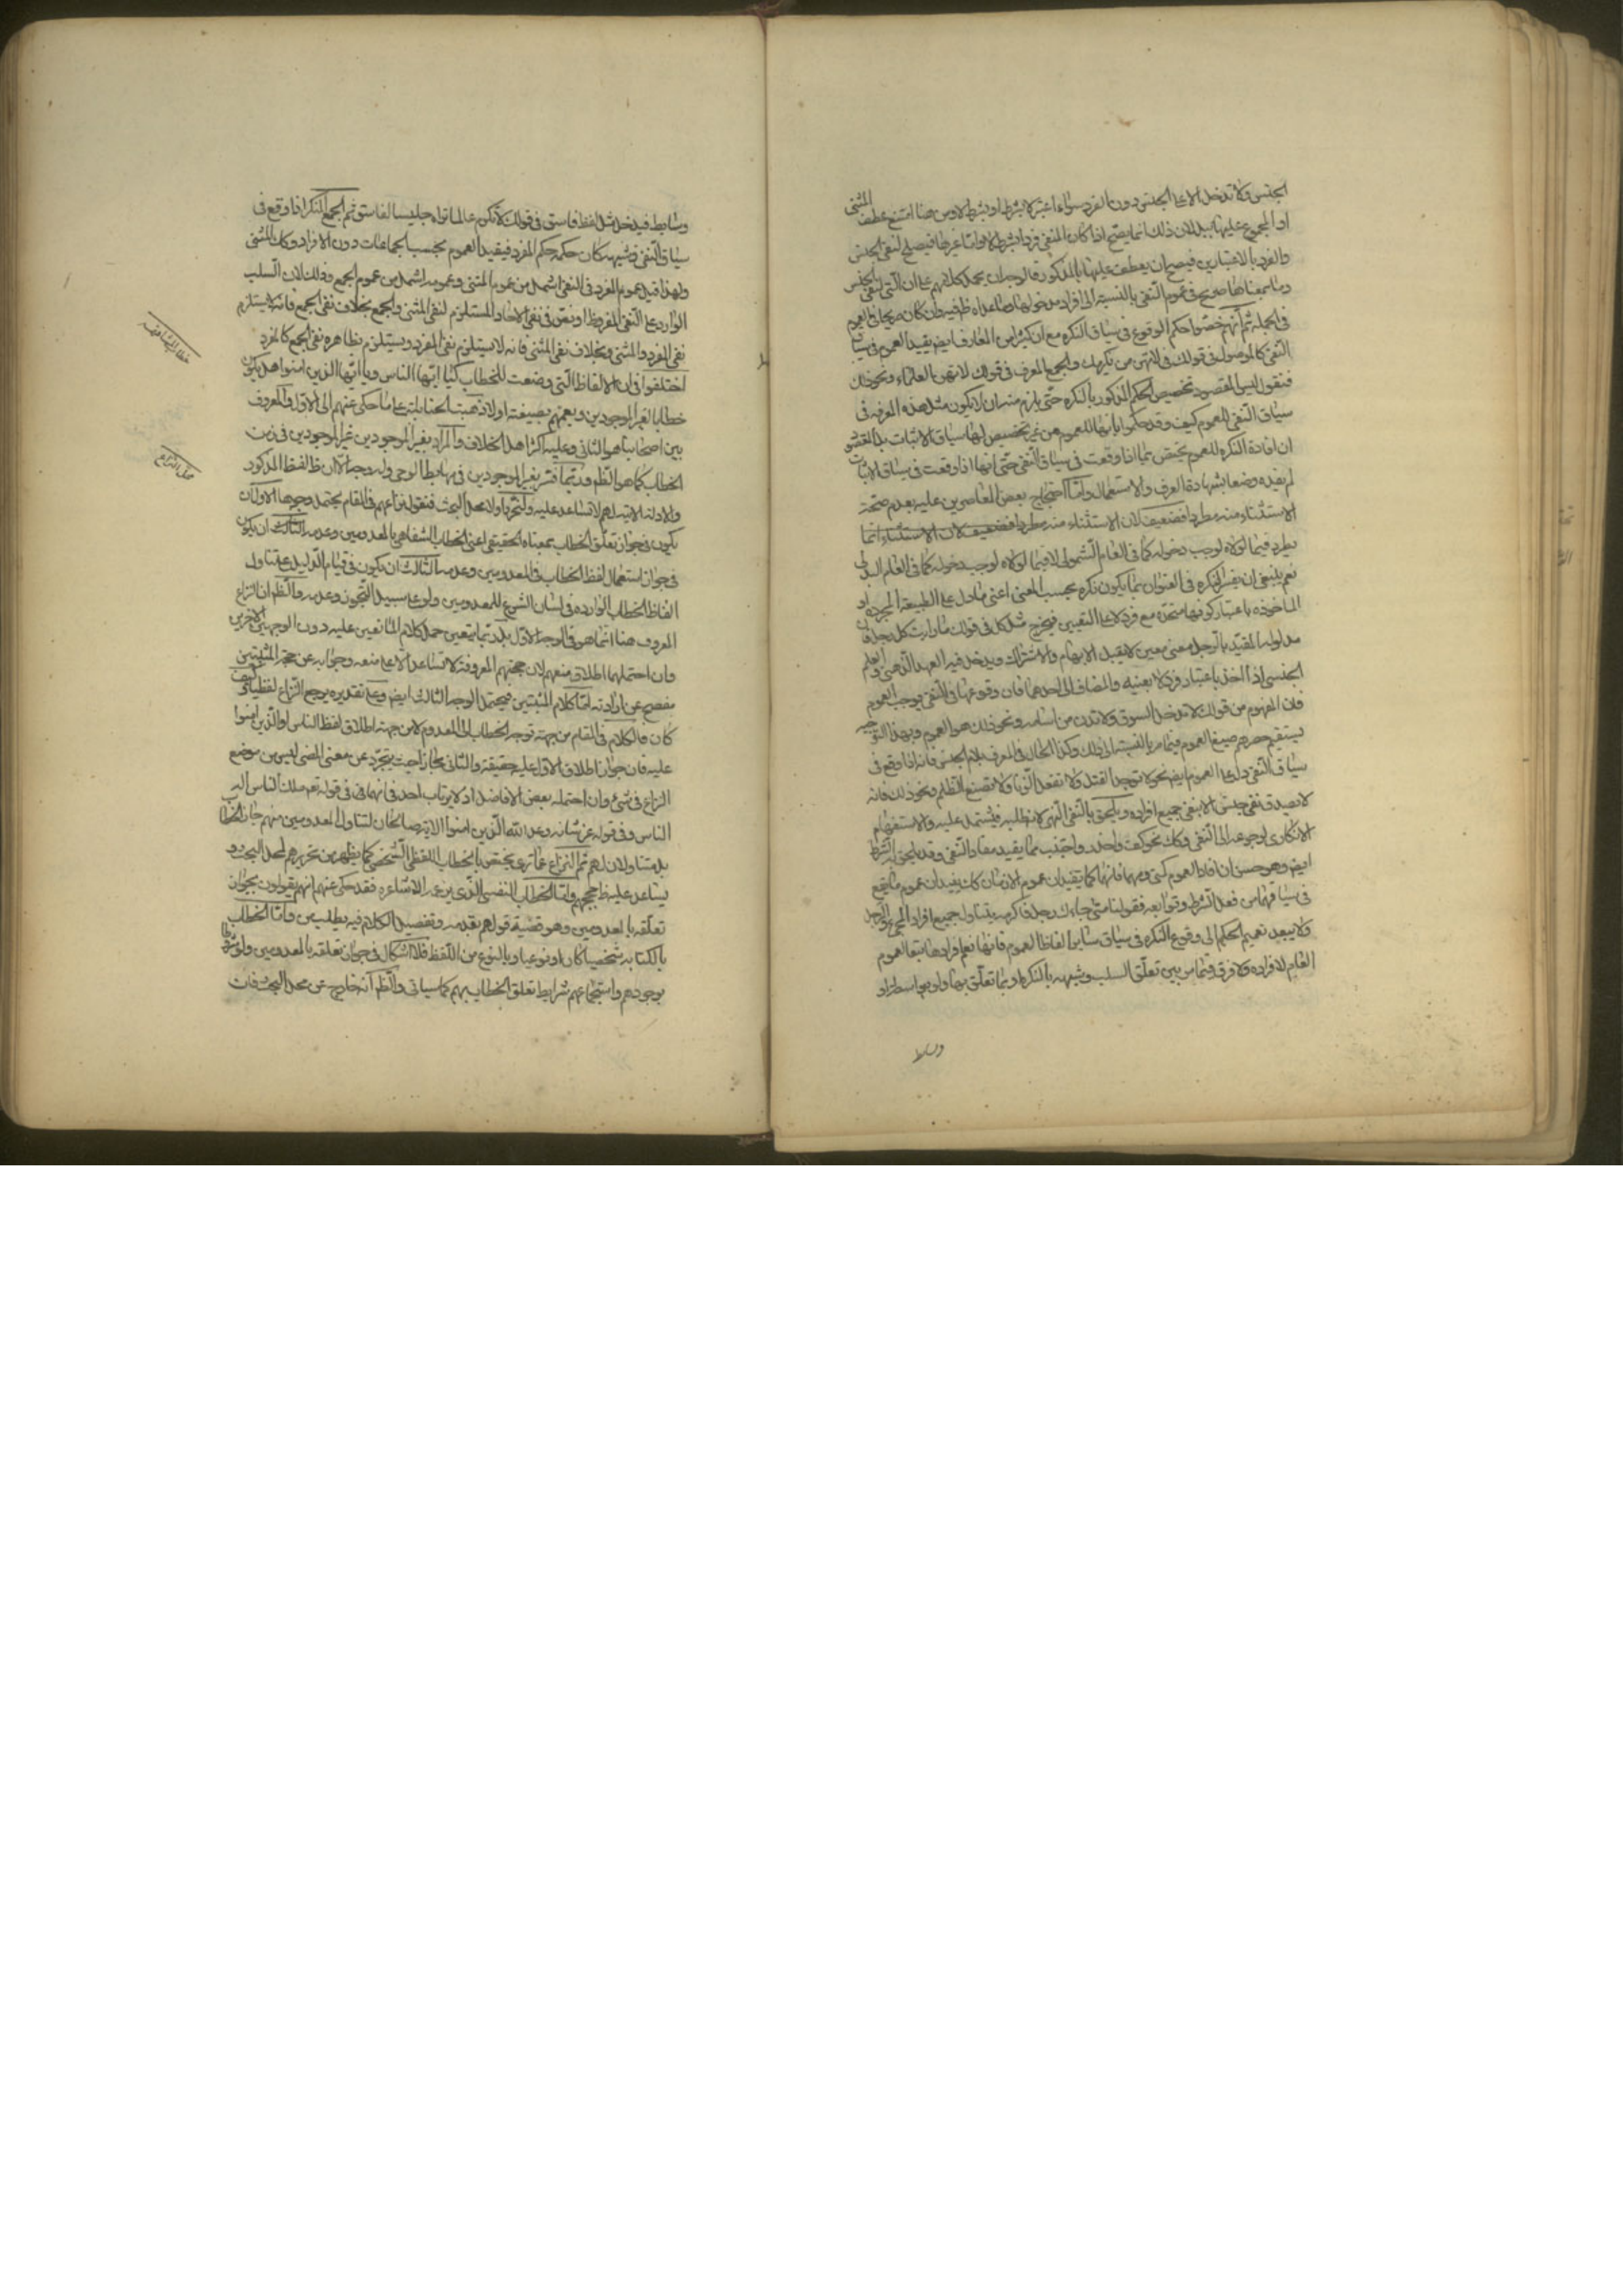 الجنس ولا تدخل الا على الجنس دون الفرد سواء اعتبر لا بشرط او بشرط لا ومن هنا امتنع عطف المثنى
او المجموع عليها ببل لان ذلك انما يصح اذا كان المنفى فردا بشرط لا واما غيرها فيصلح لنفى الجنس
والفرد بالاعتبارين فيصح ان يعطف عليها بالمذكور فالوجه ان يحمل كلامهم على ان التى لنفى الجنس
وما بمعناها صريح فى عموم النفى بالنسبة الى افراد مدخولها وما عداه ظ فيه وان كان صريحا فى العموم
فى الجملة ثم انهم خصوا حكم الوقوع فى سياق النكرة مع ان كثيرا من المعارف ايض يفيد العموم فى سياق
النفى كالموصول فى قولك لا تهن من يكرمك والجمع المعرف فى قولك لا تهن العلماء ونحو ذلك
فنقول ليس المقصود تخصيص الحكم المذكور بالنكره حتى يلزم منه ان لا يكون مثل هذه المعرفه فى
سياق النفى للعموم كيف وقد حكموا بانها للعموم من غير تخصيص لها بسياق الاثبات بل المقصود
ان افادة النكرة للعموم يختص بما اذا وقعت فى سياق النفى حتى انها اذا وقعت فى سياق الاثبات
لم تفده وضعا بشهادة العرف والاستعمال واما احتجاج بعض المعاصرين عليه بعدم صحة
الاستثناء منه مطردا فضعيف لان الاستثناء منه مطردا فضعيف لان الاستثناء انما
يطرد فيما لولاه لوجب دخوله كما فى العام الشمولى لا فيما لولاه لوجب دخوله كما فى العام البدلى
نعم ينبغى ان يفسر النكره فى العنوان بما يكون نكره بحسب المعنى اعنى ما دل على الطبيعة المجرده او
الماخوذه باعتبار كونها متحدة مع فرد لا على التعيين فيخرج مثل كل فى قولك ما رايت كل رجل فان
مدلوله المقيد بالرجل معنى معين لا يقبل الابهام والاشتراك ويدخل فيه العهد الذهنى والعلم
الجنسى اذا اخذ باعتبار فرد لا بعينه والمضاف الى احدهما فان وقوعها فى النفى يوجب العموم
فان المفهوم من قولك لا تدخل السوق ولا تدن من اسامه ونحو ذلك هو العموم وبهذا التوجيه
يستقيم حصرهم صيغ العموم فيما مر بالنسبة الى ذلك وكذا الحال فى المعرف بلام الجنس فانه اذا وقع فى
سياق النفى دل على العموم ايض نحو لا توجد القتل ولا تفعل الزنا ولا تصنع الظلم ونحو ذلك فانه
لا يصدق نفى جنس الا بنفى جميع افراده ويلحق بالنفى النهى لانه طلبه فيشتمل عليه والاستفهام
الانكارى لرجوعه الى النفى وكك نحو كف واحذر واجتنب مما يفيد مفاد النفى وقد يلحق به الشرط
ايض وهو حسن ان افاد العموم كمتى ومهما فانهما كما يفيدان عموم الازمان كك يفيدان عموم ما يقع
فى سياقهما من فعل الشرط وتوابعه فقولنا متى جاءك رجل فاكرمه يتناول جميع افراد المجىء والرجل
ولا يبعد تعميم الحكم الى وقوع النكره فى سياق سائر الفاظ العموم فانها تعم افرادها تبعا لعموم
العام لافراده ولا فرق فيما مر بين تعلق السلب وشبهه بالنكرة او بما تعلق بها ولو بواسطة او
وسايط
وسايط فيدخل مثل لفظ فاسق فى قولك لا تكرم عالما تراه جليسا لفاسق ثم الجمع المنكر اذا وقع فى
سياق النفى وشبهه كان حكمه حكم المفرد فيفيد العموم بحسب الجماعات دون الافراد وكك المثنى
ولهذا قيل عموم المفرد فى النفى اشمل من عموم المثنى وعمومه اشمل من عموم الجمع وذلك لان السلب
الوارد على النفى المفرد ظ او نص فى نفى الاحاد المستلزم لنفى المثنى والجمع بخلاف نفى الجمع فانه لا يستلزم
نفى المفرد والمثنى وبخلاف نفى المثنى فانه لا يستلزم نفى المفرد ويستلزم بظاهره نفى الجمع كالمفرد
اختلفوا فى ان الالفاظ التى وضعت للخطاب كيا ايها الناس ويا ايها الذين امنوا هل يكون
خطابا لغير الموجودين ويعمهم بصيغته اولا ذهبت الحنابلة على ما حكى عنهم الى الاول والمعروف
بين اصحابنا هو الثانى وعليه اكثر اهل الخلاف والمراد بغير الموجودين غير الموجودين فى زمن
الخطاب كما هو الظم وربما فسر بغير الموجودين فى مهابط الوحى وله وجه الا ان ظ لفظ المذكور
والادلة الاتيه لهم لا تساعد عليه ولنحرر اولا محل البحث فنقول نزاعهم فى المقام يحتمل وجوها الاول ان
يكون فى جواز تعلق الخطاب بمعناه الحقيقى اعنى الخطاب الشفاهى بالمعدومين وعدمه الثانى ان يكون
فى جواز استعمال لفظ الخطاب فى المعدومين وعدمه الثالث ان يكون فى قيام الدليل على تناول
الفاظ الخطاب الوارده فى لسان الشرع للمعدومين ولو على سبيل التجوز وعدمه والظم ان النزاع
المعروف هنا انما هو فى الوجه الاول بل ربما يتعين حمل كلام المانعين عليه دون الوجهين الاخرين
وان احتملهما اطلاق منعهم لان حججهم المعروفة لا تساعد الا على منعه وجوابه عن حجة المثبتين
مفصح عن ارادته اما كلام المثبتين فيحتمل الوجه الثالث ايض وعلى تقديره يرجع النزاع لفظيا كيف
كان فالكلام فى المقام من جهة توجه الخطاب الى المعدوم لا من جهة اطلاق لفظ الناس او الذين امنوا
عليه فان جواز اطلاق الاول عليه حقيقة والثانى مجازا حيث يتجرد عن معنى المضى ليس من موضع
النزاع فى شىء وان احتمله بعض الافاضل اذ لا يرتاب احد فى انهما فى فى قوله تعم ملك الناس اله
الناس وفى قوله عز شانه وعد الله الذين امنوا الاية صالحان لتناول المعدومين منهم جاز الخطا
بل متناولان لهم ثم النزاع على ما ترى يختص بالخطاب اللفظى الشخصى كما يظهر من تحريرهم لمحل البحث و
يساعد عليه ظ حججهم واما الخطاب النفسى الذى يزعمه الاشاعره فقد حكى عنهم انهم يقولون بجواز
تعلقه بالمعدومين وهو قضية قولهم بقدمه وتفصيل الكلام فيه يطلب من واما الخطاب
بالكتابه شخصيا كان او نوعيا او بالنوع من اللفظ فلا اشكال فى جواز تعلقه بالمعدومين ولو مشروطا
بوجودهم واستجماعهم شرايط تعلق الخطاب بهم كما سياتى والظم انه خارج عن محل البحث فان
خطاب المشافهه
محل النزاع